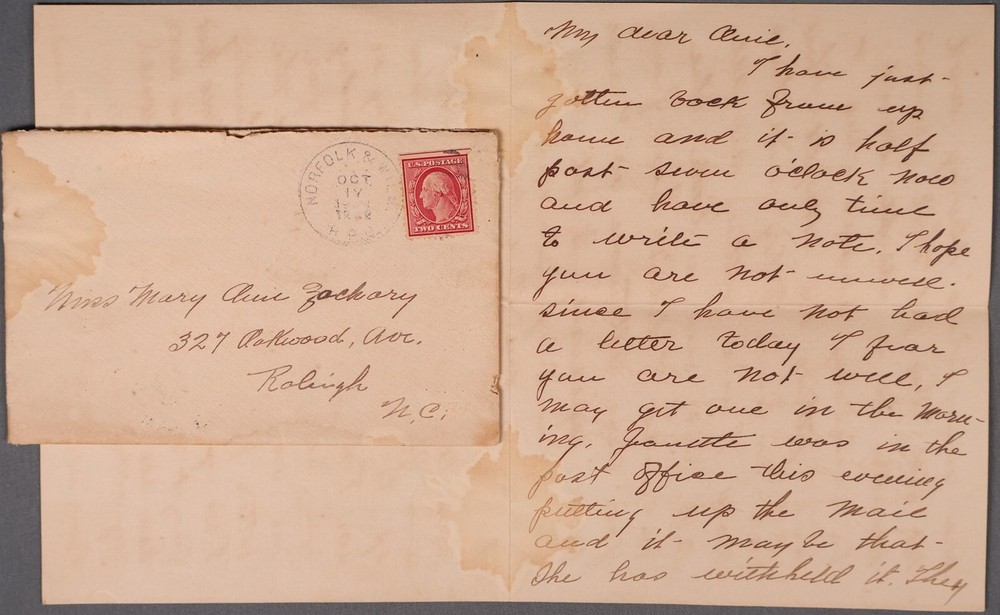 NORFOLK &
OCT
17
R.P.O.
U.S. POSTAGE
TWO CENTS
Miss Mary Anie Zachary
327 Oakwood, Ave.
Raleigh
N.C.
My dear Anie.
I have just
gotten back from up
home and it is half
past seven o'clock now
and have only time
to write a note. I hope
you are not unwell.
since I have not had
a letter today I fear
you are not well, I
may get one in the morn-
ing. Janette was in the
post office this evening
putting up the mail
and it may be that
she has withheld it. They